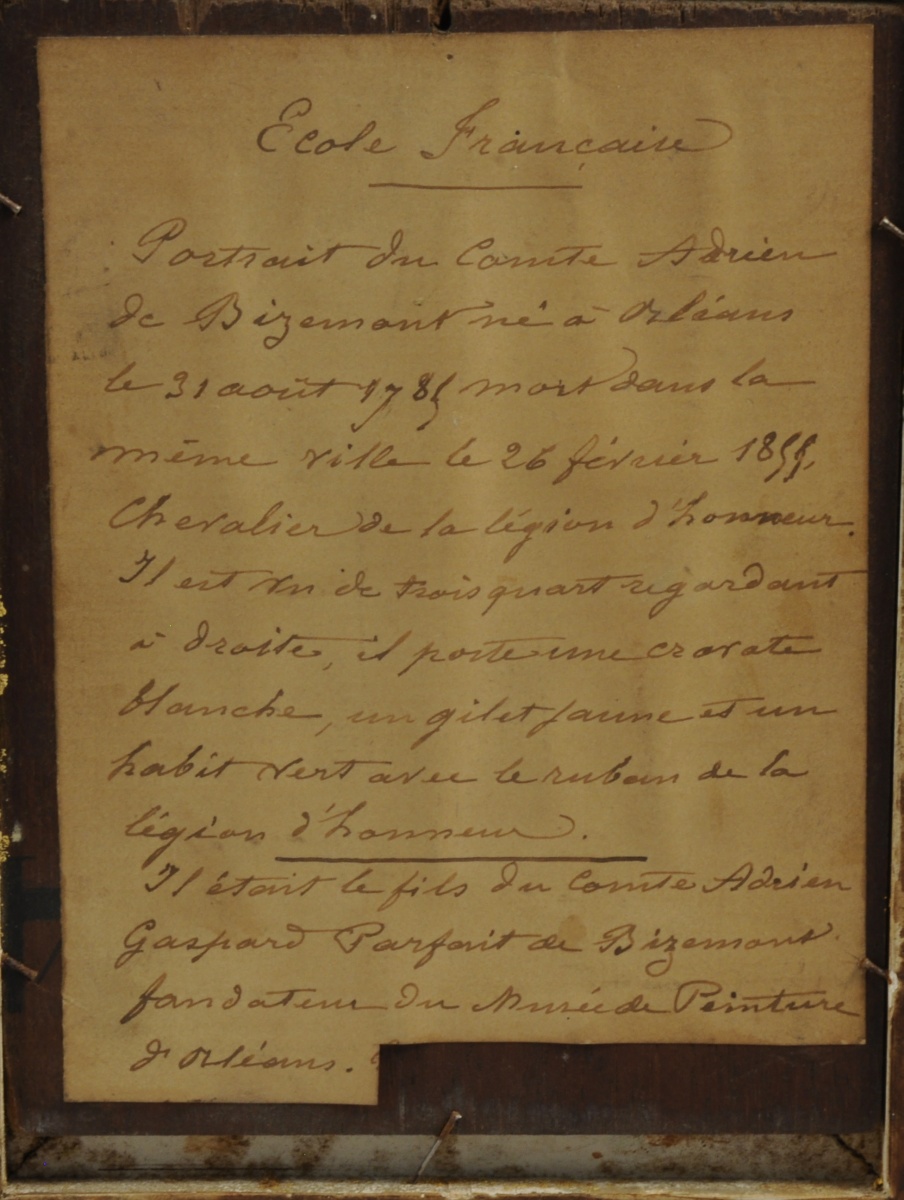 Ecole Française
Portrait du Comte Adrien
de Bizemont né à Orléans
le 31 août 1785 mort dans la
même ville le 26 février 1855,
Chevalier de la légion d'honneur.
Il est vu de trois quart regardant
à droite, il porte une cravate
blanche, un gilet jaune et un
habit vert avec le ruban de la
légion d'honneur.
Il était le fils du Comte Adrien
Gaspard Parfait de Bizemont
fondateur du Musée de Peinture
d'Orléans.